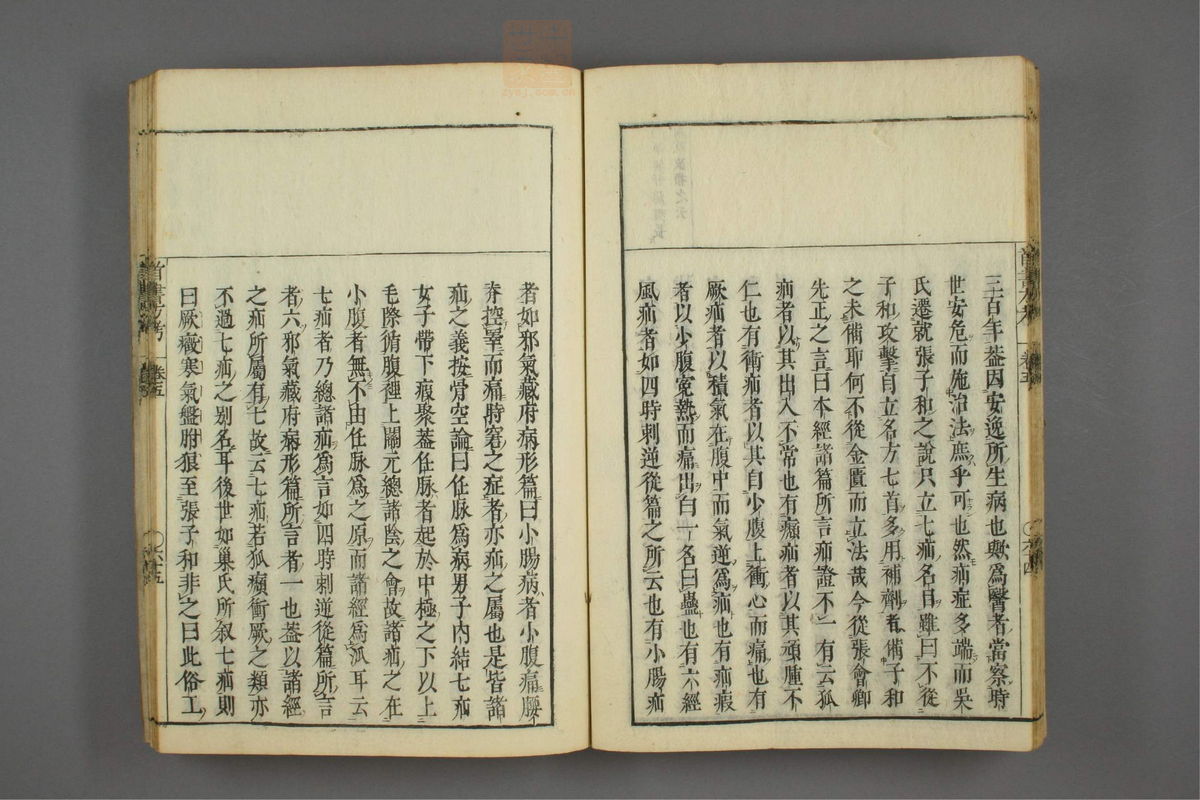 三百年蓋因安逸所生病也歟爲醫者當察時
世安危而施治法庶乎可也然疝症多端而吳
氏遷就張子和之說只立七疝名目雖曰不從
子和攻擊自立名方七首多用補劑者備子和
之未備耶何不從金匱而立法哉今從張會卿
先正之言曰本經諸篇所言疝證不一有云狐
疝者以其出入不常也有㿗疝者以其頑腫不
仁也有衝疝者以其自少腹上衝心而痛也有
厥疝者以積氣在腹中而氣逆爲疝也有疝瘕
者以少腹寃熱而痛出白一名曰蠱也有六經
風疝者如四時刺逆從篇之所云也有小腸疝
卷五
六四
者如邪氣藏府病形篇曰小腸病者小腹痛腰
脊控睪而痛時窘之症者亦疝之屬也是皆諸
疝之義按骨空論曰任脉爲病男子內結七疝
女子帶下瘕聚蓋任脉者起於中極之下以上
毛際循腹裡上關元總諸陰之會故諸疝之在
小腹者無不由任脉爲之原而諸經爲派耳云
七疝者乃總諸疝爲言如四時刺逆從篇所言
者六邪氣藏府病形篇所言者一也蓋以諸經
之疝所屬有七故云七疝若狐㿗衝厥之類亦
不過七疝之別名耳後世如巢氏所叙七疝則
曰厥癥寒氣盤胕狼至張子和非之曰此俗工
首書方考
卷五
六五
zysj.com.cn